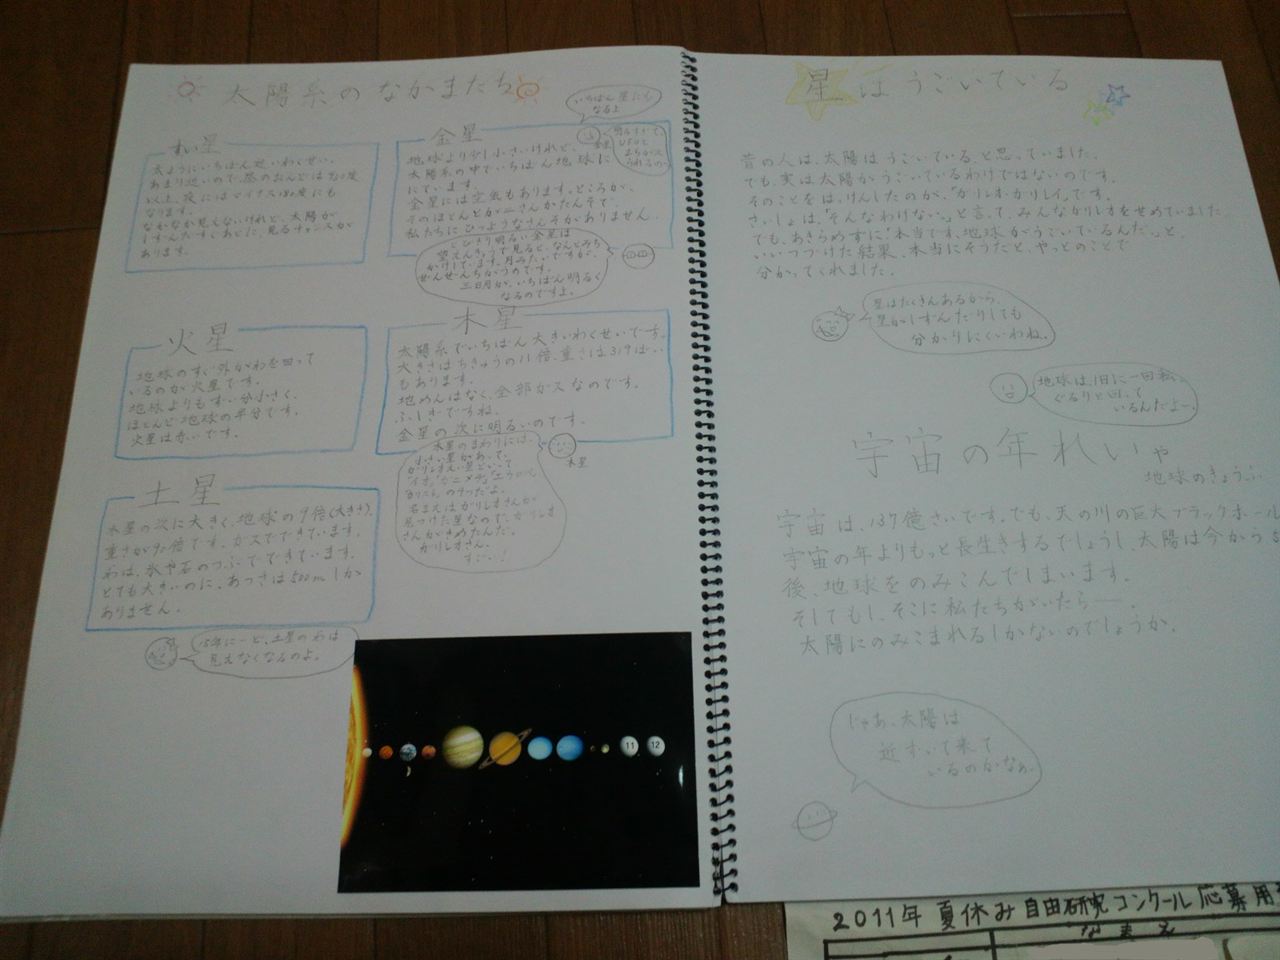 太陽系のなかまたち
いちばん星にも
なるよ
水星
太ようにいちばん近いわくせい。
あまり近いので、昼のおんどは
いじょう、夜にはマイナス180度にも
なります。
なかなか見えないけれど、太陽が
しずんだすぐあとに、見るチャンスが
あります。
金星
地球より少し小さいけれど、
太陽系の中でいちばん地球に
にています。
金星には空気もあります。ところが、
そのほとんどが二さんかたんそで、
私たちにひつようなさんそがありません。
金星
明るすぎて
UFOと
まちがえ
られるの
とびきり明るい金星は
望えんきょうで見ると、なんとみち
かけしてます。月みたいですが、
ぜんぜんちがうのです。
三日月が、いちばん明るく
なるのですよ。
火星
地球のすぐ外がわを回って
いるのが火星です。
地球よりもずい分小さく、
ほとんど地球の半分です。
火星は赤いです。
木星
太陽系でいちばん大きいわくせいです。
大きさはちきゅうの11倍、重さは319ばい
もあります。
地めんはなく、全部ガスなのです。
ふしぎですね。
金星の次に明るいのです。
木星
木星のまわりには、
小さい星があって、
ガリレオえい星といって
「イオ」「ガニメデ」「エウロパ」
「カリスト」の4つだよ。
名まえはガリレオさんが
見つけた星なので、ガリレオ
さんがきめたんだ。
ガリレオさん、
すごーい!
土星
木星の次に大きく、地球の9倍(大きさ)、
重さが90倍です。ガスでできています。
わは、氷や石のつぶでできています。
とても大きいのに、あつさは500mしか
ありません。
15年に一ど、土星のわは
見えなくなるのよ。
11 12
星はうごいている
昔の人は、太陽はうごいている、と思っていました。
でも、実は太陽がうごいているわけではないのです。
そのことをはっけんしたのが、「ガリレオ・ガリレイ」です。
さいしょは、「そんなわけない。」と言って、みんなガリレオをせめていました。
でも、あきらめずに「本当です。地球がうごいているんだ。」と、
いいつづけた結果、本当にそうだと、やっとのことで
分かってくれました。
星はたくさんあるから、
1星がしずんだりしても
分かりにくいわね。
地球は、1日に一回転、
ぐるりと回って
いるんだよー。
宇宙の年れいや
地球のきょうふ
宇宙は、137億さいです。でも、天の川の巨大ブラックホール
宇宙の年よりもっと長生きするでしょうし、太陽は今から
後、地球をのみこんでしまいます。
そしてもし、そこに私たちがいたら――。
太陽にのみこまれるしかないのでしょうか。
じゃあ、太陽は
近ずいて来て
いるのかなぁ。
2011年 夏休み 自由研究コンクール応募用
なまえ